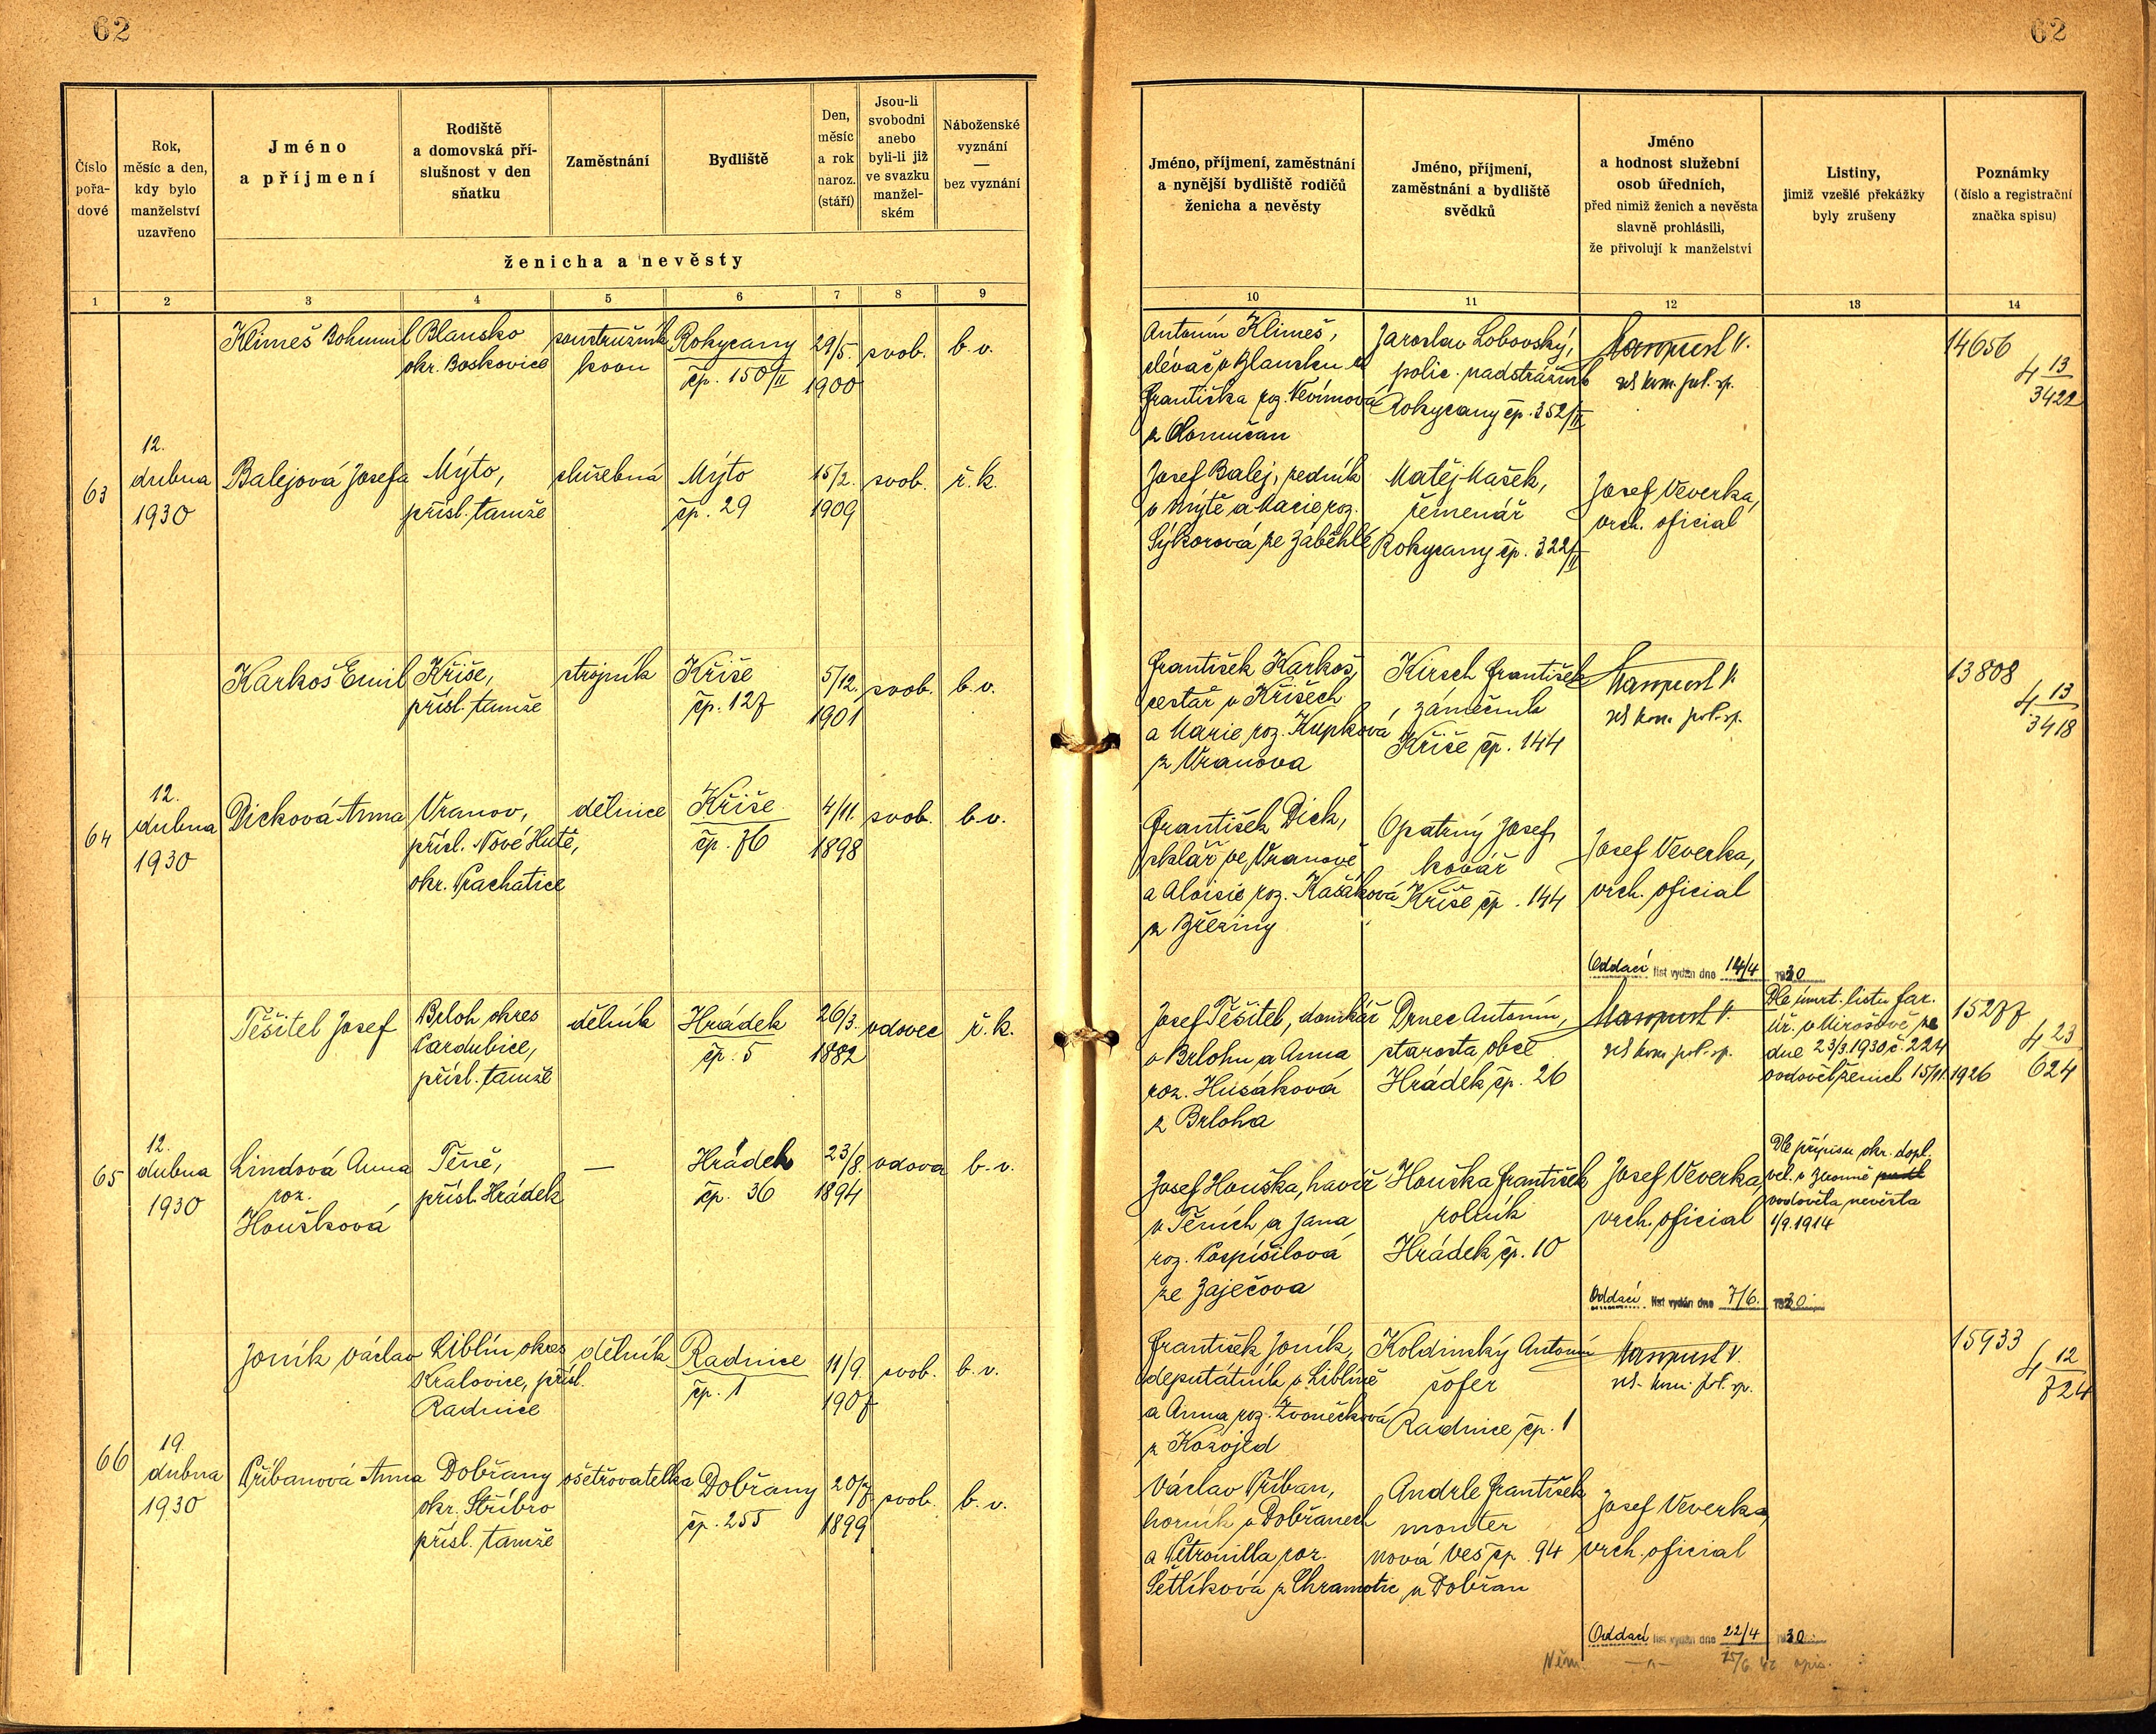 62
62
Číslo pořa-dové
Rok, měsíc a den, kdy bylo manželství uzavřeno
Jméno a příjmení
Rodiště a domovská pří-slušnost v den sňatku
Zaměstnání
Bydliště
Den, měsíc a rok naroz. (stáří)
Jsou-li svobodni anebo byli-li již ve svazku manžel-ském
Náboženské vyznání — bez vyznání
ženicha a nevěsty
Jméno, příjmení, zaměstnání a nynější bydliště rodičů ženicha a nevěsty
Jméno, příjmení, zaměstnání a bydliště svědků
Jméno a hodnost služební osob úředních, před nimiž ženich a nevěsta slavně prohlásili, že přivolují k manželství
Listiny, jimiž vzešlé překážky byly zrušeny
Poznámky (číslo a registrační značka spisu)
1 2 3 4 5 6 7 8 9
10 11 12 13 14
63
12.
dubna
1930
Klimeš Bohumil
Blansko
okr. Boskovice
soustružník
kovu
Rokycany
čp. 150/II
29/5.
1900
svob.
b. v.
Antonín Klimeš,
slévač v Blansku a
Františka roz. Nevímová
z Olomučan
Jaroslav Lobovský,
polic. nadstrážník
Rokycany čp. 352/II
14656
4 13
3422
Balejová Josefa
Mýto,
přísl. tamže
služebná
Mýto
čp. 29
15/2.
1909
svob.
ř. k.
Josef Balej, zedník
v Mýtě a Marie roz.
Sýkorová ze Záběhlé
Matěj Mašek,
řemenář
Rokycany čp. 322/II
Josef Veverka,
vrch. oficial
64
12.
dubna
1930
Karkoš Emil
Kříše,
přísl. tamže
strojník
Kříše
čp. 127
5/12.
1901
svob.
b. v.
František Karkoš,
cestář v Kříších
a Marie roz. Kupková
z Vranova
Kirsch František
zámečník
Kříše čp. 144
13808
4 13
3418
Dicková Anna
Vranov,
přísl. Nové Hutě,
okr. Prachatice
dělnice
Kříše
čp. 76
4/11.
1898
svob.
b. v.
František Dick,
sklář ve Vranově
a Aloisie roz. Kašáková
z Březiny
Opatrný Josef,
kovář
Kříše čp. 144
Josef Veverka,
vrch. oficial
Oddací list vydán dne 14/4 1930
65
12.
dubna
1930
Těšitel Josef
Brloh okres
Pardubice,
přísl. tamže
dělník
Hrádek
čp. 5
26/3.
1882
vdovec
ř. k.
Josef Těšitel, domkář
v Brlohu a Anna
roz. Husáková
z Brloha
Drnec Antonín,
starosta obce
Hrádek čp. 26
Dle úmrt. listu far.
úř. v Mirošově ze
dne 23/3.1930 č. 224
ovdověl ženich 15/11.1926
15277
4 23
624
Lindová Anna
roz.
Houšková
Těně,
přísl. Hrádek
—
Hrádek
čp. 36
23/8.
1894
vdova
b. v.
Josef Houška, havíř
v Těních a Jana
roz. Pospíšilová
ze Zaječova
Houška František
rolník
Hrádek čp. 10
Josef Veverka,
vrch. oficial
Dle přípisu okr. dopl.
vel. v
ovdověla nevěsta
1/9.1914
Oddací list vydán dne 7/6. 1930
66
19.
dubna
1930
Joník Václav
Liblín okres
Kralovice, přísl.
Radnice
dělník
Radnice
čp. 1
11/9.
1907
svob.
b. v.
František Joník,
deputátník v Liblíně
a Anna roz. Zvonečková
z Kozojed
Koldinský Antonín
šofer
Radnice čp. 1
15933
4 12
724
Příbanová Anna
Dobřany
okr. Stříbro
přísl. tamže
ošetřovatelka
Dobřany
čp. 255
20/7.
1899
svob.
b. v.
Václav Příban,
horník v Dobřanech
a Petronilla roz.
Šetlíková z Chramotic
Andrle František
monter
Nová Ves čp. 94
u Dobřan
Josef Veverka,
vrch. oficial
Oddací list vydán dne 22/4 1930